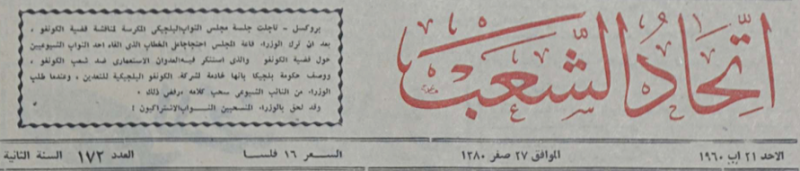 اتحاد الشعب
بروكسل - تاجلت جلسة مجلس النواب البلجيكي المكرسة لمناقشة قضية الكونغو ،
بعد ان ترك الوزراء قاعة المجلس احتجاجا على الخطاب الذي القاه احد النواب الشيوعيين
حول قضية الكونغو والذي استنكر فيه العدوان الاستعماري ضد شعب الكونغو ،
ووصف حكومة بلجيكا بانها خادمة لشركة الكونغو البلجيكية للتعدين ، وعندما طلب
الوزراء من النائب الشيوعي سحب كلامه رفض ذلك .
وقد لحق بالوزراء المنسحبين النواب الاشتراكيون !
الاحد ٢١ اب ١٩٦٠ الموافق ٢٧ صفر ١٣٨٠ السعر ١٦ فلسا العدد ١٧٢ السنة الثانية